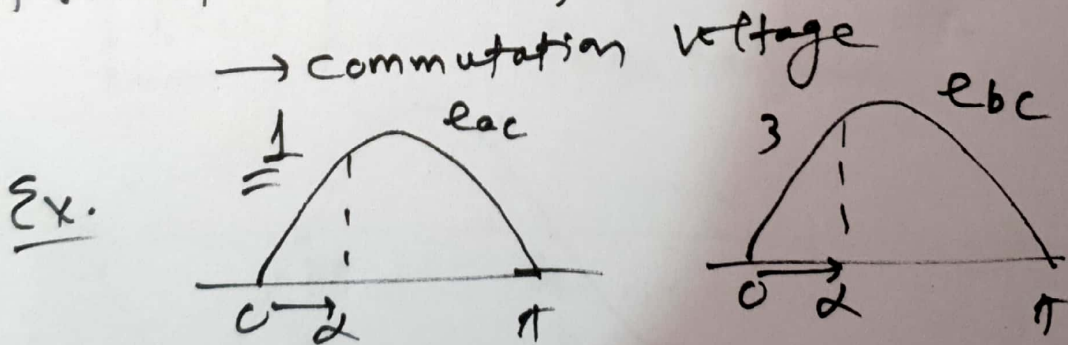 → commutation voltage
Ex.
1 eac
0 → α π
3 ebc
0 → α π